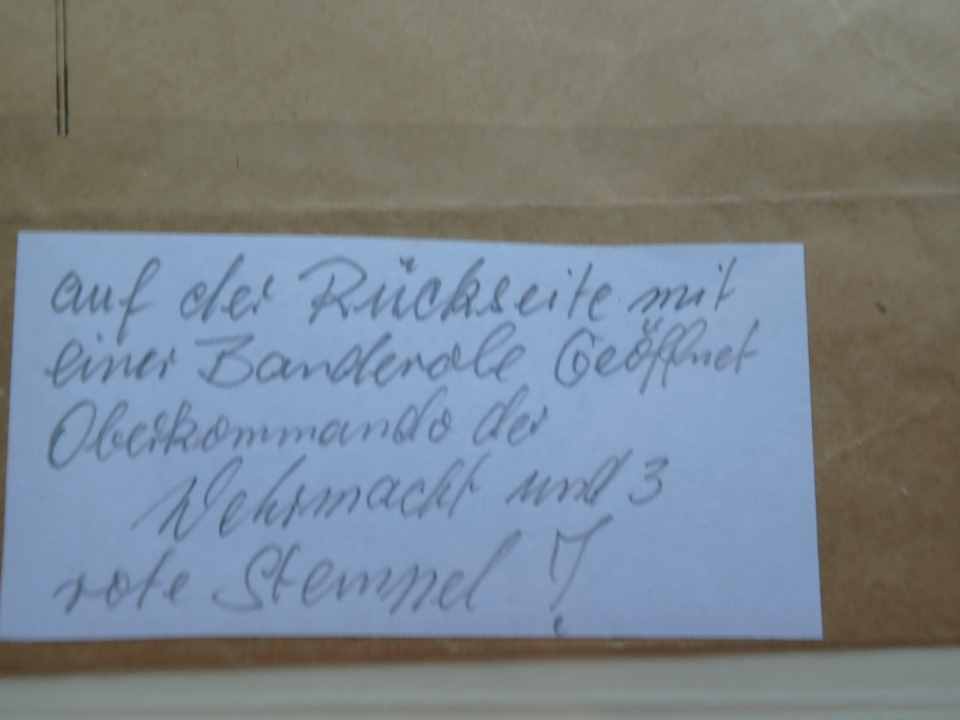 auf der Rückseite mit
einer Banderole Geöffnet
Oberkommando der
Wehrmacht und 3
rote Stempel !